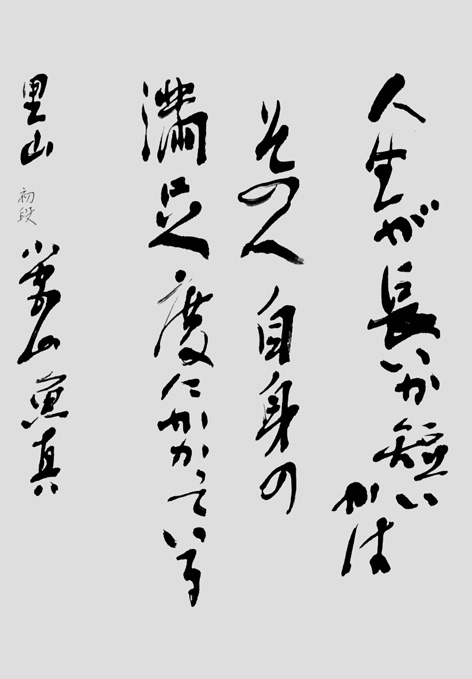 人生が長いか短いかは
その人自身の
満足度にかかっている
里山 初段 小雲山 魚真